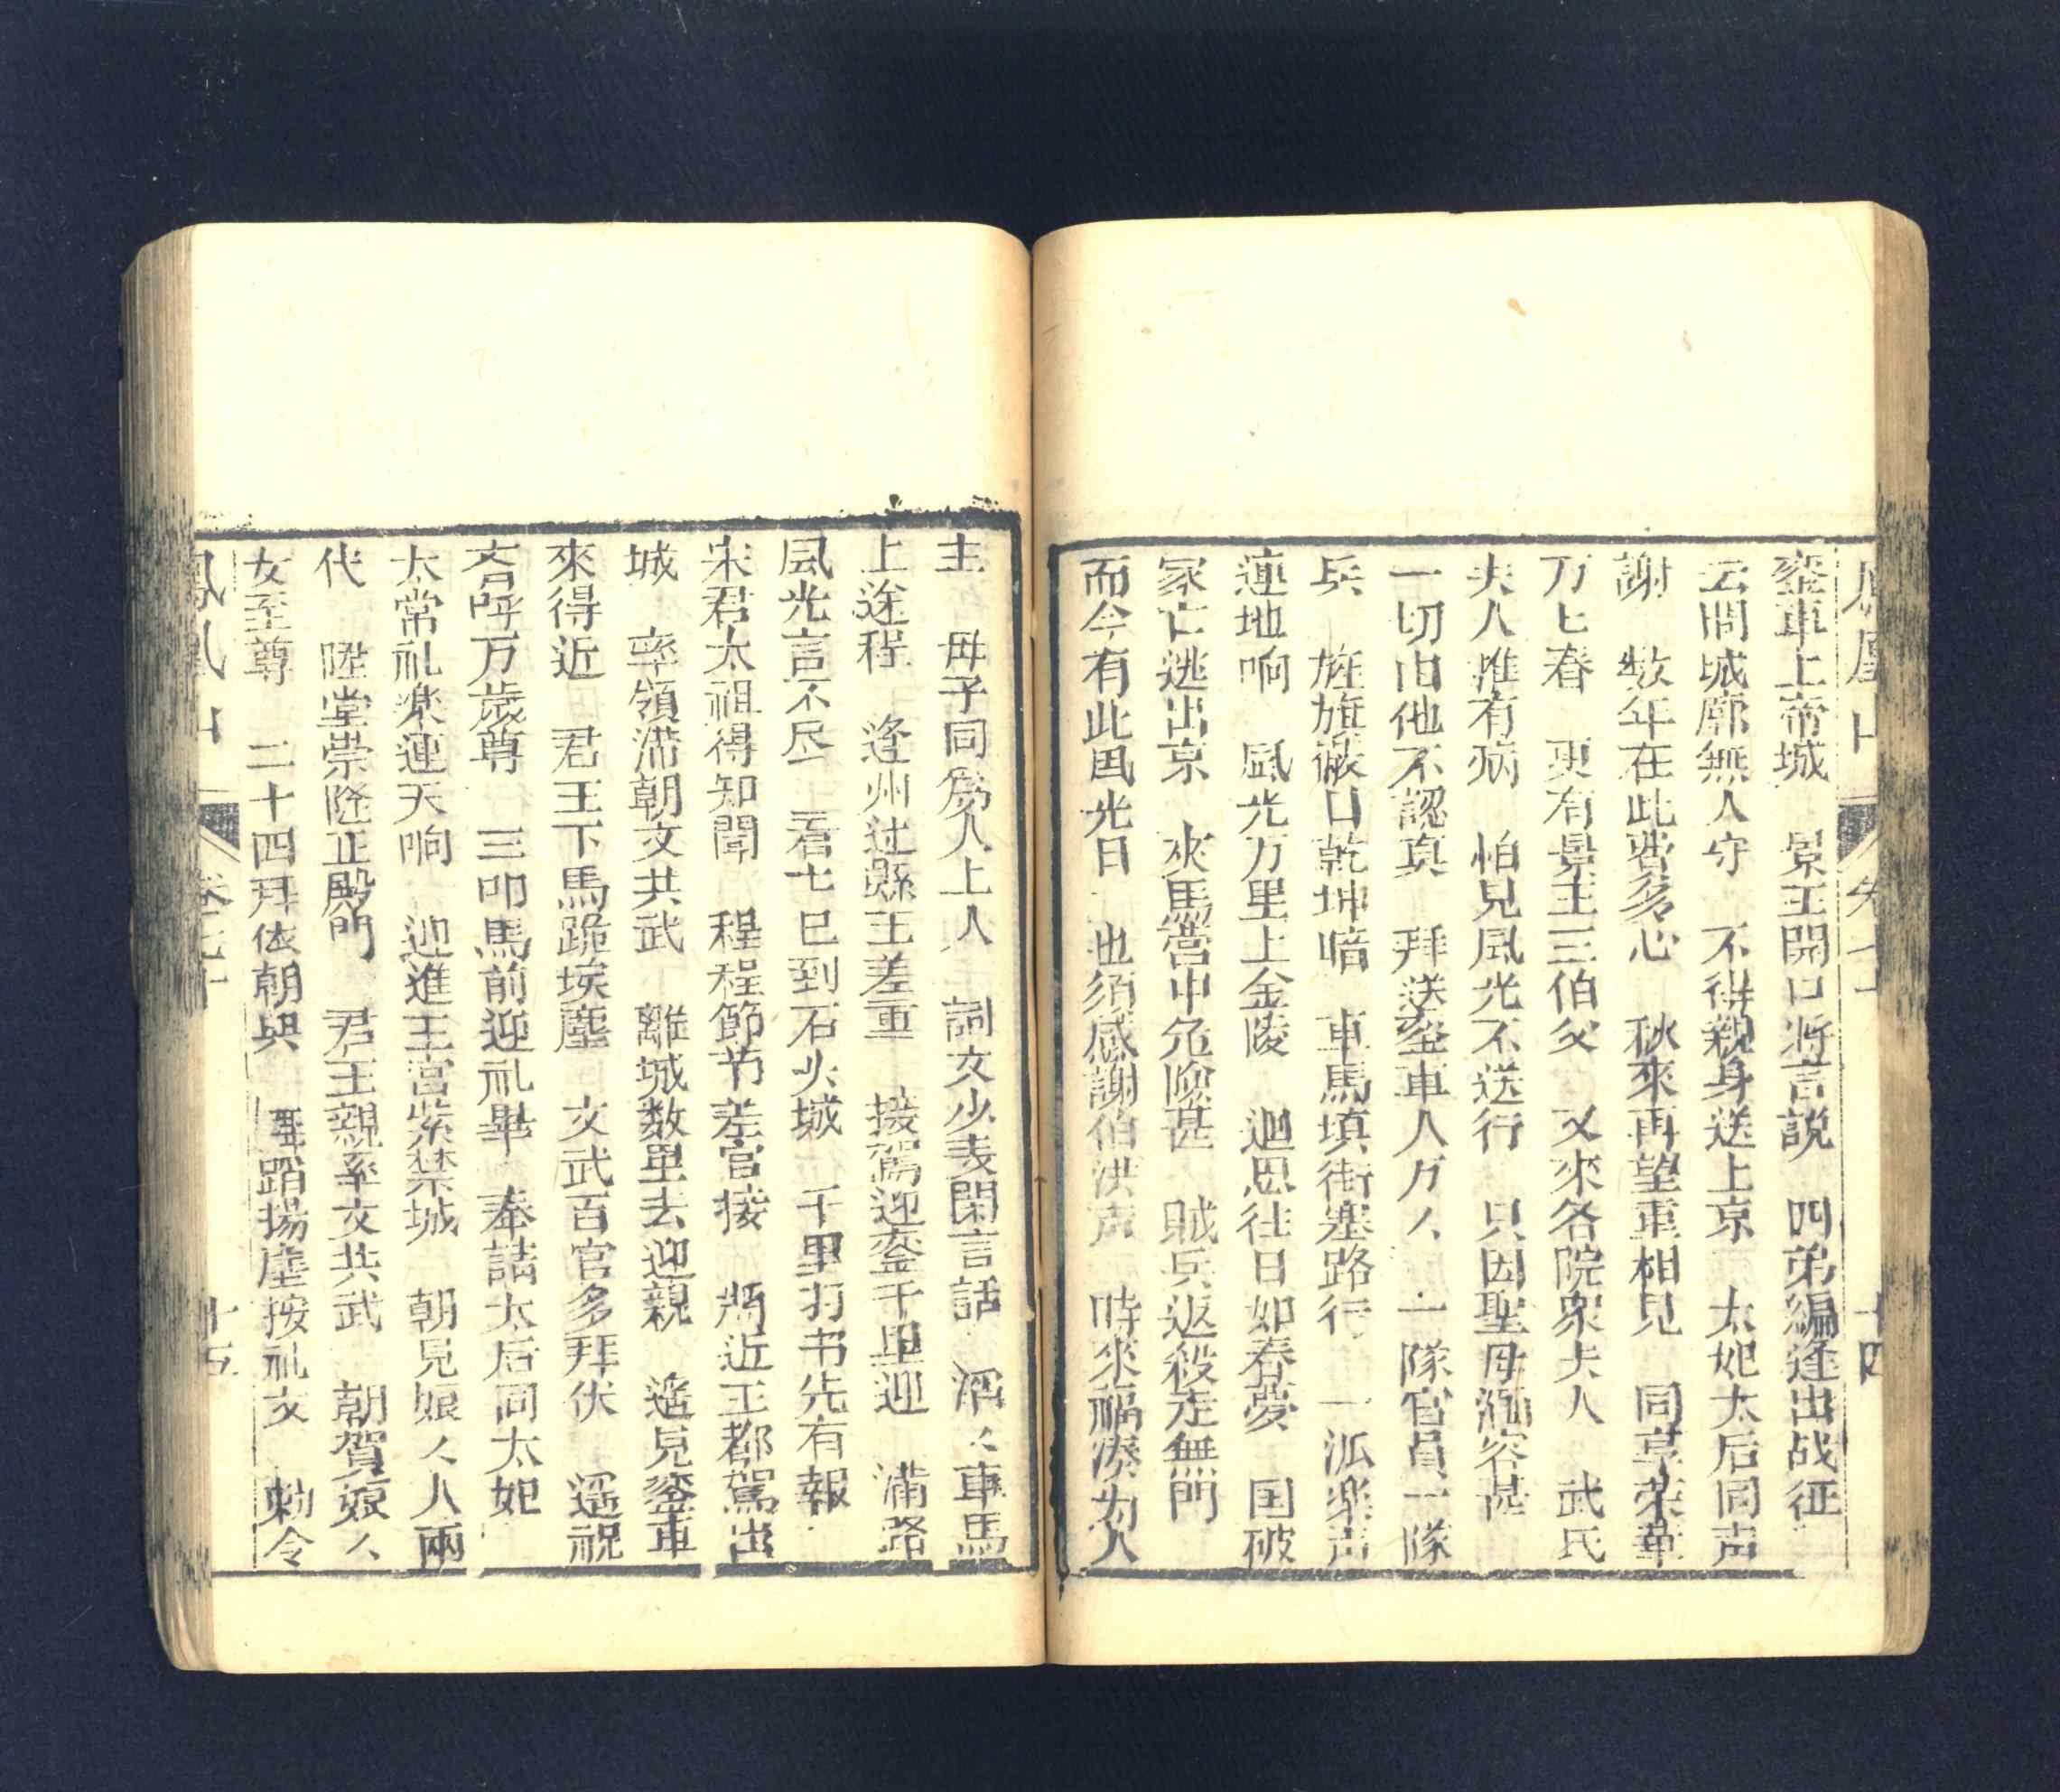 鳳凰山 卷七十 十四
鑾車上帝城 景王開口將言説 四弟編逢出战征
云間城廓無人守 不得親身送上京 太妃太后同声
謝 数年在此費多心 秋來再望重相見 同享荣華
万匕春 更有景王三伯父 又來各院衆夫人 武氏
夫人推有病 怕見風光不送行 只因聖母 容甚
一切由他不認真 拜送鑾車人万人 一隊官員一隊
兵 旌旗蔽日乾坤暗 車馬填街塞路行 一派楽声
連地响 風光万里上金陵 迴思往日如春夢 国破
家亡逃出京 夾馬營中危險甚 賊兵返殺走無門
而今有此風光日 也須感謝伯洪声 時來福凑为人
主 毋子同為人上人 詞文少表閑言話 滔〻車馬
上途程 逢州过縣王差重 接駕迎鑾千里迎 滿路
風光言不尽 看七巳到石火城 千里打书先有報
宋君太祖得知聞 程程節节差官接 将近王都駕出
城 率領满朝文共武 離城数里去迎親 遙見鑾車
來得近 君王下馬跪埃塵 文武百官多拜伏 遥祝
吝呼万歲尊 三叩馬前迎礼畢 奉請太后同太妃
太常礼楽連天响 迎進王宫紫禁城 朝見娘〻人兩
代 陞堂崇陞正殿門 君王親率文共武 朝賀娘〻
女至尊 二十四拜依朝典 舞蹈揚塵按礼文 勅令
鳳凰山 卷七十 十五